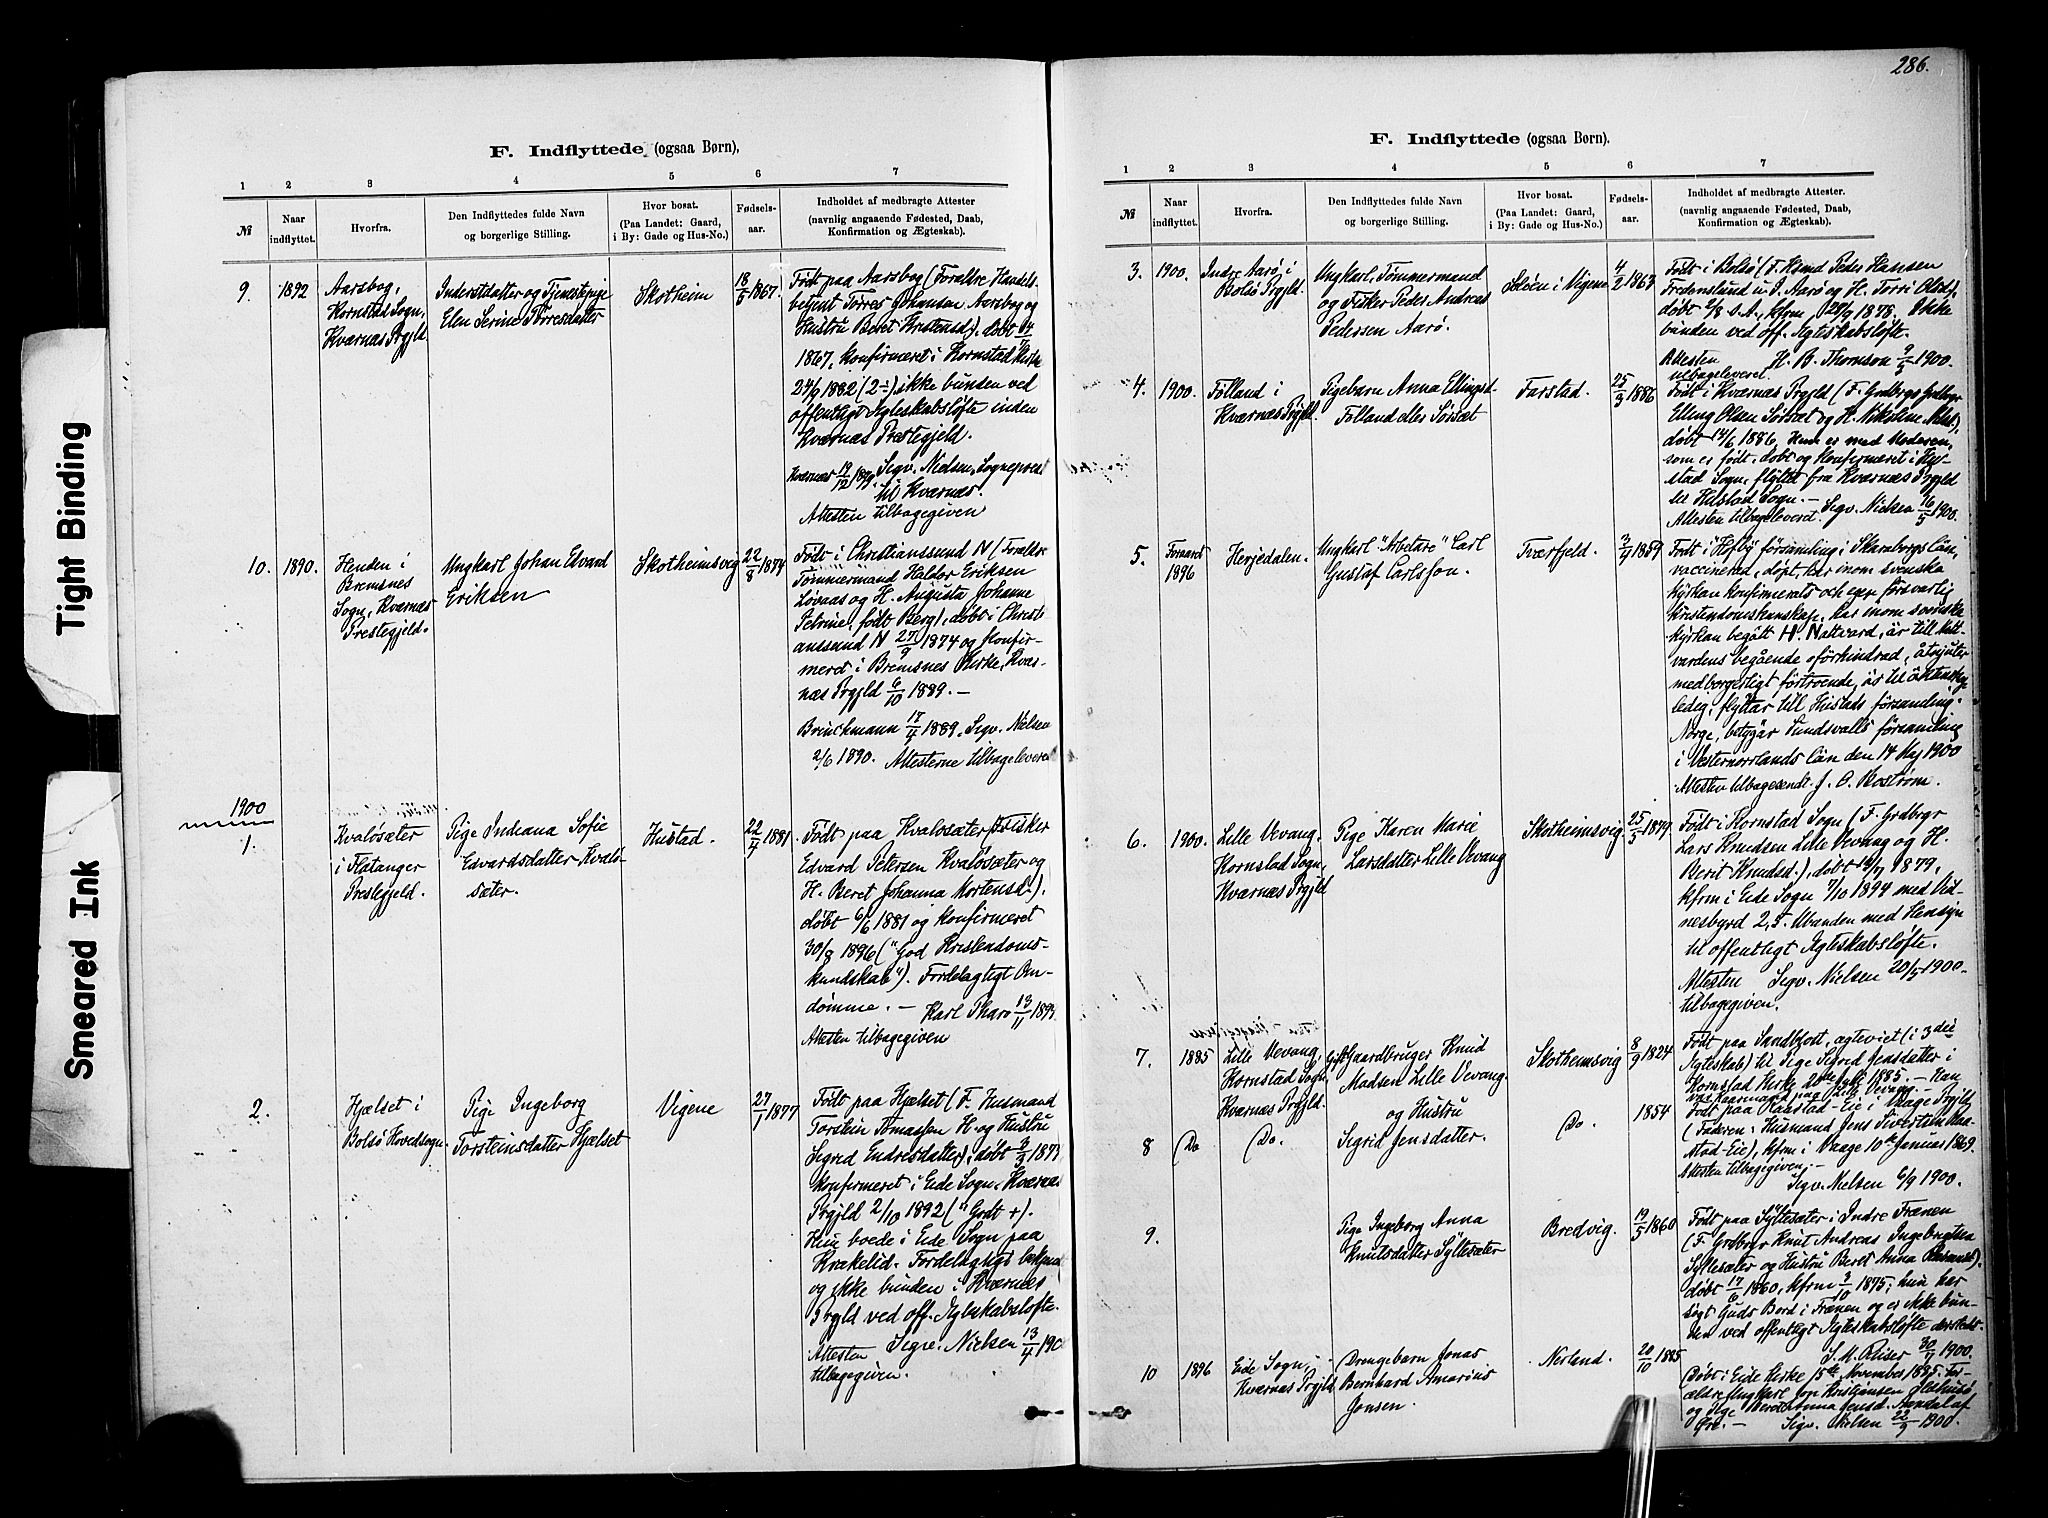 Tight Binding
Smeared Ink
F. Indflyttede (ogsaa Børn),
1 2 3 4 5 6 7
№
Naar indflyttet.
Hvorfra.
Den Indflyttedes fulde Navn
og borgerlige Stilling.
Hvor bosat.
(Paa Landet: Gaard,
i By: Gade og Hus-No.)
Fødsels-
aar.
Indholdet af medbragte Attester
(navnlig angaaende Fødested, Daab,
Konfirmation og Ægteskab).
9. 1892
Aarsbog,
Kornstad Sogn,
Kværnæs Prgjld.
Inderstdatter og Tjenestepige
Elen Serine Torresdatter
Skotheim
18/5 1867.
Født paa Aarsbog (Forældre Handels-
betjent Torres Johansen Aarsbog og
Hustru Beret Kristensd.), døbt
1867, konfirmeret i Kornstad Kirke
24/9 1882 (2÷), ikke bunden ved
offentligt Ægteskabsløfte inden
Kværnæs Præstegjeld.
Kværnæs 19/12 1899. Sigv. Nielsen, Sognepræst
til Kværnæs.
Attesten tilbagegiven
10. 1890.
Henden i
Bremsnes
Sogn, Kværnæs
Prestegjeld.
Ungkarl Johan Edvard
Eriksen
Skotheimsvig
22/8 1874
Født i Christianssund N (Forældre
Tømmermand Haldor Eriksen
Løvaas og H. Augusta Johanne
Petrine, født Berg), døbt i Christi-
anssund N 27/9 1874 og konfir-
meret i Bremsnes Kirke, Kvær-
næs Prgjld 6/10 1889. —
Brinckmann 17/4 1889. Sigv. Nielsen
2/6 1890. Attesterne tilbageleveret
1900
1.
Kvaløsæter
i Flatanger
Prestegjeld.
Pige Indiana Sofie
Edvardsdatter Kvalø-
sæter.
Hustad.
22/4 1881
Født paa Kvaløsæter (F. Fisker
Edvard Petersen Kvaløsæter og
H. Beret Johanna Mortensd.),
døbt 6/6 1881 og konfirmeret
30/8 1896 ("God Kristendoms-
kundskab"). Fordelagtigt Om-
dømme. — Karl Tharo 13/11 1899.
Attesten tilbagegiven
2.
Hjælset i
Bolsø Hovedsogn
Pige Ingeborg
Torsteinsdatter Hjælset
Vigene
27/1 1877
Født paa Hjælset (F. Husmand
Torstein Tomassen H. og Hustru
Sigrid Endresdatter), døbt 2/3 1877
konfirmeret i Eide Sogn, Kværnæs
Prgjld 2/10 1892 ("Godt +).
Hun boede i Eide Sogn paa
Krækelid. Fordelagtigt bekjendt
og ikke bunden i Kværnæs
Prgjld ved off. Ægteskabsløfte.
Attesten Sigv. Nielsen 13/4 190
tilbagegiven.
286.
F. Indflyttede (ogsaa Børn).
1 2 3 4 5 6 7
№
Naar indflyttet.
Hvorfra.
Den Indflyttedes fulde Navn
og borgerlige Stilling.
Hvor bosat.
(Paa Landet: Gaard,
i By: Gade og Hus-No.)
Fødsels-
aar.
Indholdet af medbragte Attester.
(navnlig angaaende Fødested, Daab,
Konfirmation og Ægteskab).
3. 1900.
Indre Aarø i
Bolsø Prgjld.
Ungkarl, Tømmermand
og Fisker Peder Andreas
Pedersen Aarø.
i Vigene
4/2 1863
Født i Bolsø (F. Hsmd Peder Hansen
Fredenslund u. I. Aarø og H. Torri Olsd.),
døbt 2/8 s. A., kfrm 29/9 1878. Ikke
bunden ved off. Ægteskabsløfte.
Attesten H. B. Thomson 9/5 1900.
tilbageleveret
4. 1900.
Folland i
Kværnæs Prgjld.
Pigebarn Anna Ellingsd.
Folland eller Sørsæt
Farstad.
25/3 1886
Født i Kværnæs Prgjld (F.
Elling Olsen Sørsæt og H. Nikoline
døbt 14/6 1886. Hun er med Moderen,
som er født, døbt og konfirmeret i Hu-
stad Sogn, flyttet fra Kværnæs Prgjld
til Hustad Sogn. —
Attesten tilbageleveret. Sigv. Nielsen 16/5 1900.
5.
Foraaret
1896
Herjedalen.
Ungkarl "Arbetare" Carl
Gustaf Carlsson.
Tverfjeld.
3/9 1859
Født i Hofby församling i Skaraborgs Län,
vaccinerad, döpt, har inom svenska
kyrkan konfirmerats och eger försvarlig
kristendomskunskap, har inom svenska
kyrkan begått H. Nattvard, är till natt-
vardens begående oförhindrad, åtnjuter
medborgerligt förtroende, är til äktenskap
ledig, flyttar till Hustads församling i
Norge, betygar Sundsvalls församling
i Vesternorrlands Län den 14 Maj 1900
Attesten tilbagesendt. J. O. Boström.
6. 1900.
Lille Vevang,
Kornstad Sogn,
Kværnæs Prgjld
Pige Karen Marie
Larsdatter Lille Vevang
Skotheimsvig
25/5 1879
Født i Kornstad Sogn (F. Grdbrgr
Lars Knudsen Lille Vevang og H.
Berit Knudsd.), døbt 14/7 1879,
kfrm i Eide Sogn 7/10 1894 med Vid-
næsbyrd 2,5. Ubunden med Hensyn
til offentligt Ægteskabsløfte.
Attesten Sigv. Nielsen 20/5 1900.
tilbagegiven.
7. 1885
Lille Vevang,
Kornstad Sogn,
Kværnæs Prgjld.
Gift Gaardbruger Knud
Madsen Lille Vevang
og Hustru
Skotheimsvig
8/9 1824
Født paa Sandblost, ægteviet (i 3die
Ægteskab) til Pige Sigrid Jensdatter i
Kornstad Kirke 20de 1885. — Han
var Kaarmand paa Lille Vevang.
8 Do Do.
Sigrid Jensdatter.
Do.
1854
Født paa Raastad-Eie i Vaage Prgjld
(Faderen: Husmand Jens Sivertsen Raa-
stad-Eie), kfrm i Vaage 10de Januar 1869.
Attesten tilbagegiven. —
Sigv. Nielsen 6/9 1900.
9.
Pige Ingeborg Anna
Knutsdatter Syltesæter
Bredvig.
19/5 1860
Født paa Syltesæter i Indre Frænen
(F. Grdbrgr Knut Andreas Ingebrigtsen
Syltesæter og Hustru Beret Anna
døbt 17/6 1860, kfrm 3/10 1875; hun har
søgt Guds Bord i Frænen og er ikke bun-
den ved offentligt Ægteskabsløfte dersteds.
S. M. Reiser 30/7 1900.
10 1896
Eide Sogn,
Kværnæs Prgjld
Drengebarn Jonas
Bernhard Amarius
Jonsen.
Nerland.
20/10 1885
Døbt i Eide Kirke 15de November 1885. For-
ældre Ungkarl Jon Kristjansen
og Pige Anna Jensd.
Øre. — Sigv. Nielsen 22/9 1900.